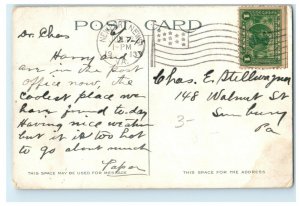 POST CARD
Dr. Chas
Harry and
are in the post
office now the
coolest place we
have found today
Having nice
but it is too hot
to go about much
Papa
7-
1-PM
1
Chas. E.
148 Walnut St
Sunbury
Pa
3-
THIS SPACE MAY BE USED FOR MESSAGE
THIS SPACE FOR THE ADDRESS